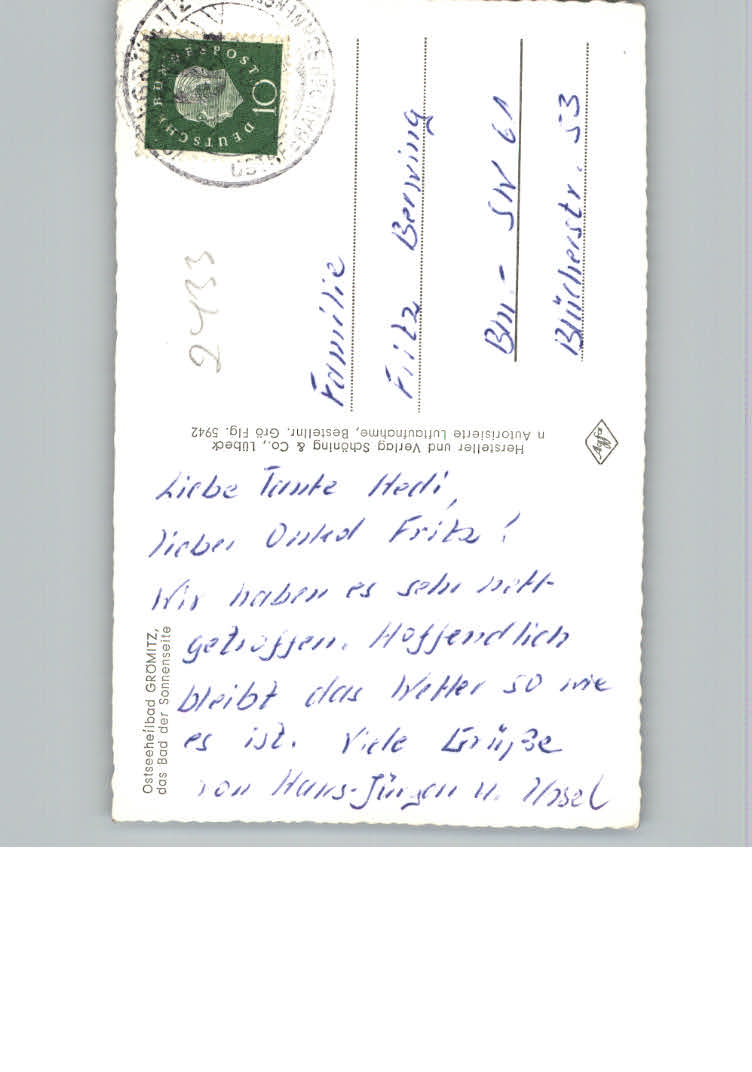 Liebe Tante Hedi,
lieber Onkel Fritz!
Wir haben es sehr nett
getroffen. Hoffendlich
bleibt das Wetter so wie
es ist. Viele Grüße
von Hans-Jürgen u.
Familie
Fritz
Bln.- SW 61
Blücherstr. 53
2433
DEUTSCHE BUNDESPOST
10
GRÖMITZ
Hersteller und Verlag Schöning & Co., Lübeck
n Autorisierte Luftaufnahme, Bestellnr. Grö Flg. 5942
Agfa
Ostseeheilbad GRÖMITZ,
das Bad der Sonnenseite